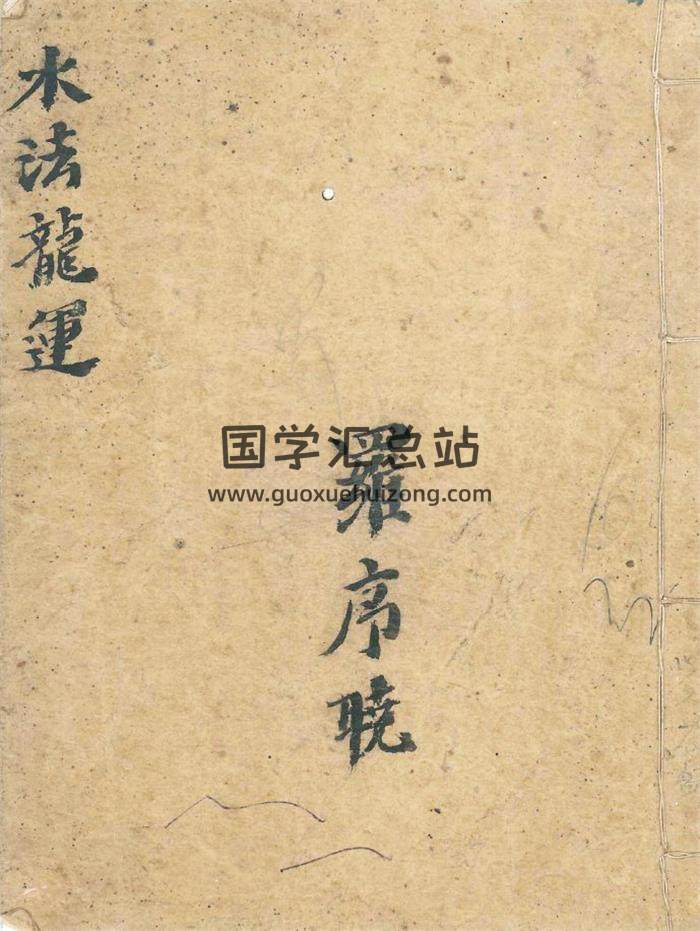 水法龍運
羅序曉
国学汇总站
www.guoxuehuizong.com